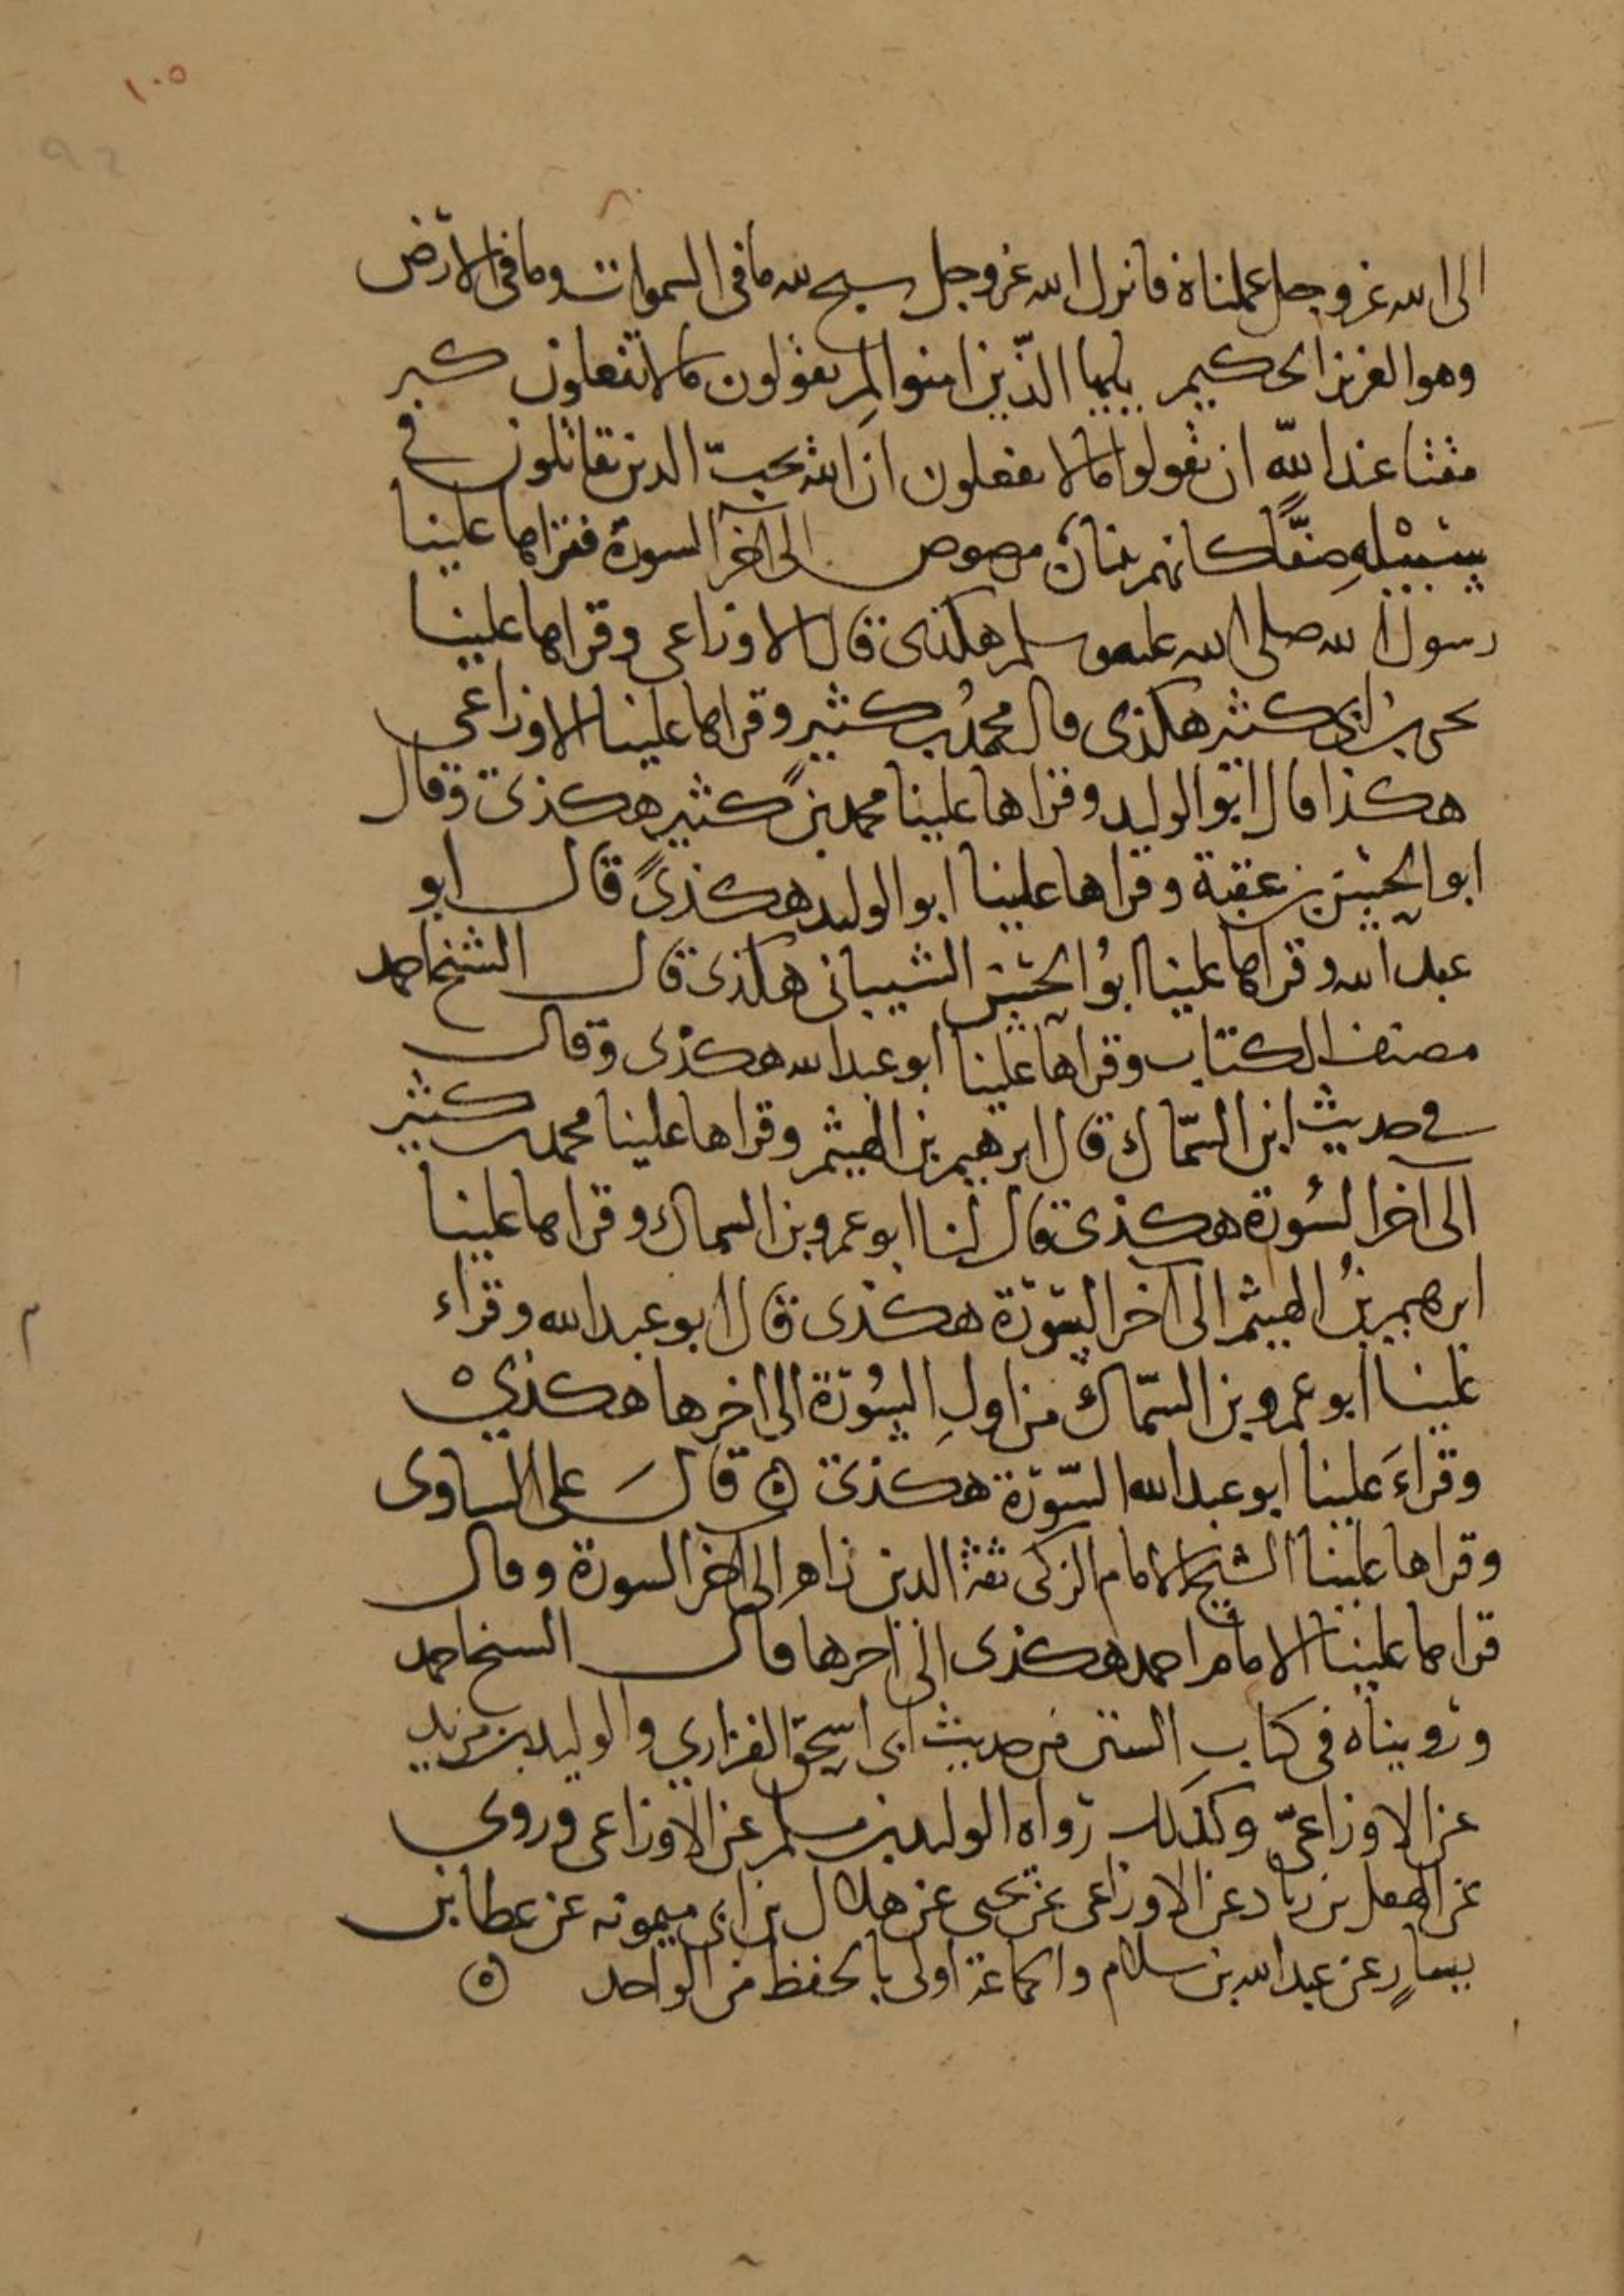 ١٠٥
الى الله عز وجل عملناه فانزل الله عز وجل سبح لله ما في السموات وما في الارض
وهو العزيز الحكيم يايها الذّين امنوا لم تقولون ما لا تفعلون كبر
مقتا عند اللّه ان تقولوا ما لا تفعلون ان الله يحبّ الذين يقاتلون في
سبيله صفّا كانهم بنيان مرصوص الى آخر السورة فقراها علينا
رسول الله صلى الله عليه وسلم هكذى قال الاوزاعى وقراها علينا
يحيى بن ابى كثير هكذى قال محمد بن كثير وقراها علينا الاوزاعى
هكذا قال ابو الوليد وقراها علينا محمد بن كثير هكذى وقال
ابو الحسين بن عقبة وقراها علينا ابو الوليد هكذى قال ابو
عبد الله وقراها علينا ابو الحسين الشيبانى هكذى قال الشيخ احمد
مصنف الكتاب وقراها علينا ابو عبد الله هكذى وقال
فى حديث ابن السّماك قال ابرهيم بن الهيثم وقراها علينا محمد بن كثير
الى آخر السُورة هكذى قال لنا ابو عمرو بن السماك وقراها علينا
ابرهيم بن الهيثم الى آخر السّورة هكذى قال ابو عبد الله وقراء
علينا ابو عمرو بن السّماك من اولِ السُورة الى اخرها هكذى ه
وقراءَ علينا ابو عبد الله السّورة هكذى ۞ قالَ على الساوى
وقراها علينا الشيخ الامام الزكى ثقة الدين زاهر الى آخر السورة وقال
قراها علينا الامام احمد هكذى الى اخرها قال الشيخ احمد
ورويناه فى كتاب السنن من حديث ابى اسحق الفزاري والوليد بن مزيد
عن الاوزاعىّ وكذلك رواه الوليد بن مسلم عن الاوزاعى وروى
عن الهقل بن زياد عن الاوزاعى عن يحيى عن هلال بن ابى ميمونه عن عطا بن
يسارٍ عن عبد الله بن سلام والجماعة اولى بالحفظ من الواحد ۞